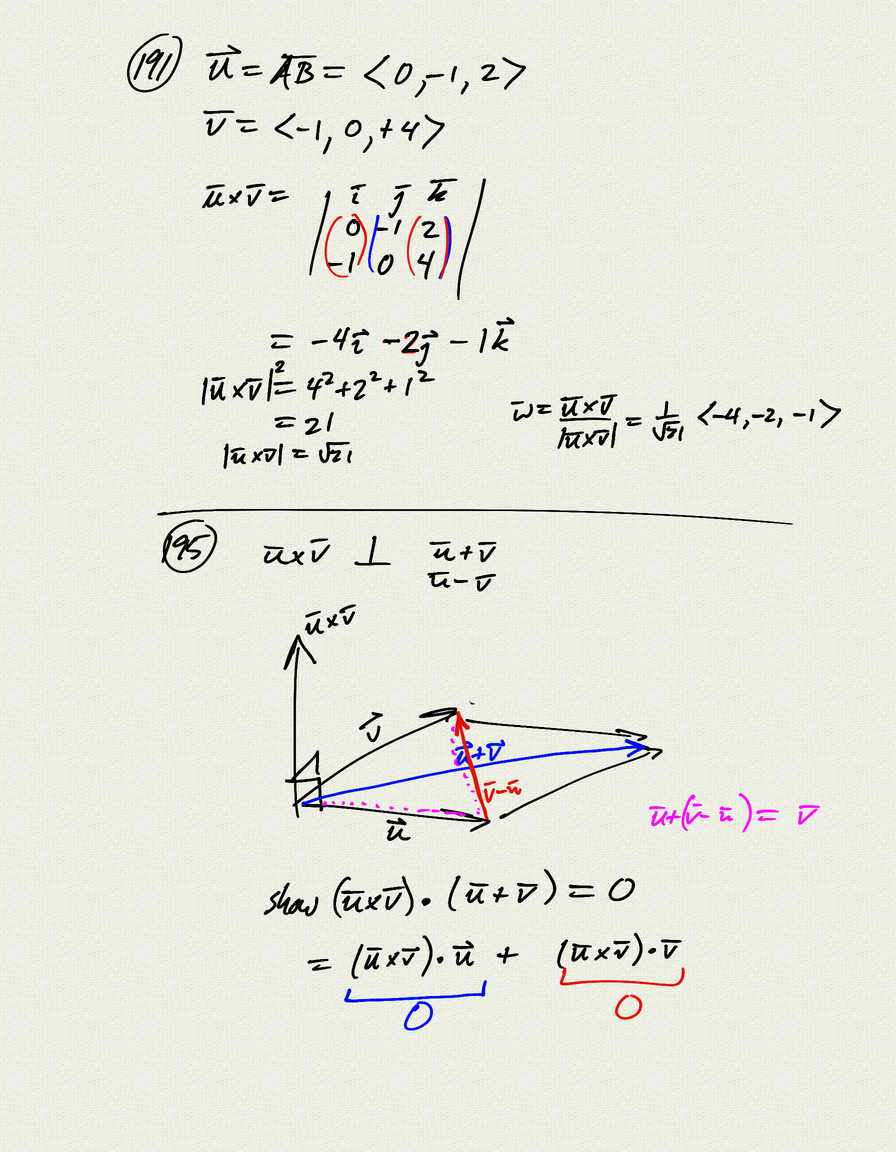 191 u⃗ = A̅B̅ = <0, -1, 2>
v̅ = <-1, 0, +4>
u̅ × v̅ = | i̅ j̅ k̅ |
0 -1 2
-1 0 4
= -4i⃗ - 2j⃗ - 1k⃗
|u̅ × v̅|² = 4² + 2² + 1²
= 21
|u̅ × v̅| = √21
w̅ = u̅ × v̅ / |u̅ × v̅| = 1/√21 <-4, -2, -1>
195 u̅ × v̅ ⊥ u̅ + v̅
u̅ - v̅
u̅ × v̅
v⃗
u̅ + v̅
v̅ - u̅
u⃗
u̅ + (v̅ - u̅) = v̅
show (u̅ × v̅) · (u̅ + v̅) = 0
= (u̅ × v⃗) · u⃗ + (u̅ × v̅) · v̅
0 0